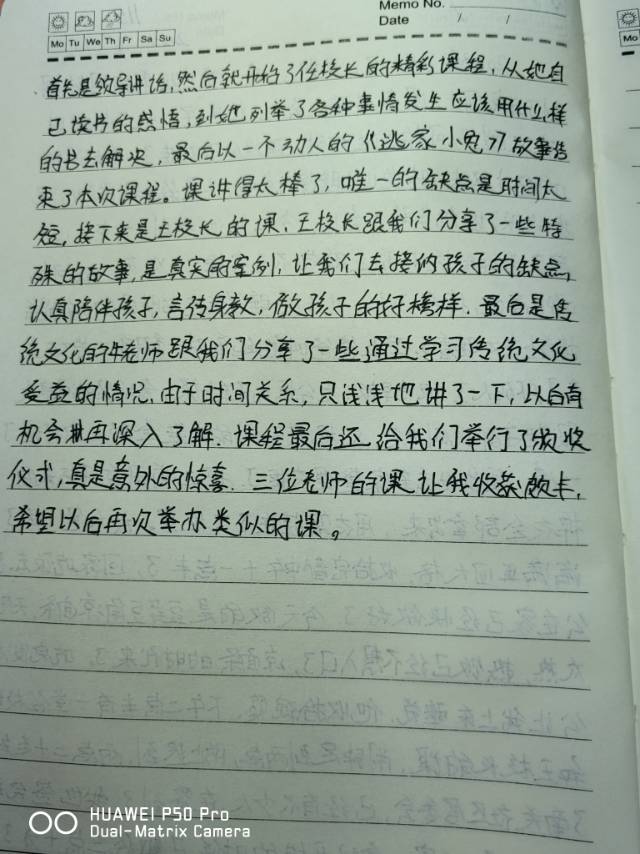 Memo No.
Date / /
Mo Tu We Th Fr Sa Su
Mo
首先是领导讲话,然后就开始了任校长的精彩课程,从她自
己读书的感悟,到她列举了各种事情发生应该用什么样
的书去解决,最后以一个动人的《逃家小兔》故事结
束了本次课程。课讲得太棒了,唯一的缺点是时间太
短,接下来是王校长的课.王校长跟我们分享了一些特
殊的故事,是真实的案例,让我们去接纳孩子的缺点,
认真陪伴孩子,言传身教,做孩子的好榜样.最后是传
统文化的牛老师跟我们分享了一些通过学习传统文化
受益的情况.由于时间关系,只浅浅地讲了一下,以后有
机会再深入了解.课程最后还给我们举行了颁奖
仪式,真是意外的惊喜.三位老师的课让我收获颇丰,
希望以后再次举办类似的课。
HUAWEI P50 Pro
Dual-Matrix Camera